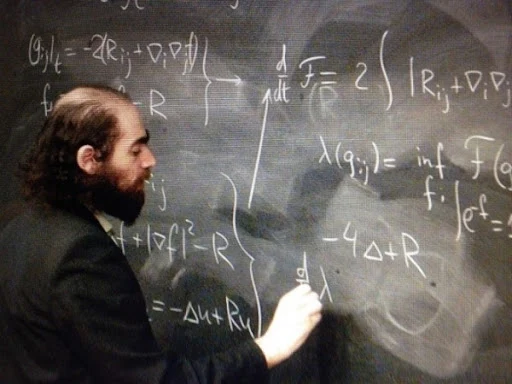 (g_ij)_t = -2(R_ij + ∇_i∇_j f)
- R
d/dt F = 2 ∫ |R_ij + ∇_i∇_j
λ(g_ij) = inf F(g
f: ∫e^-f = 1
ij
f + |∇f|² - R
-4Δ + R
= -Δu + Ru
d λ